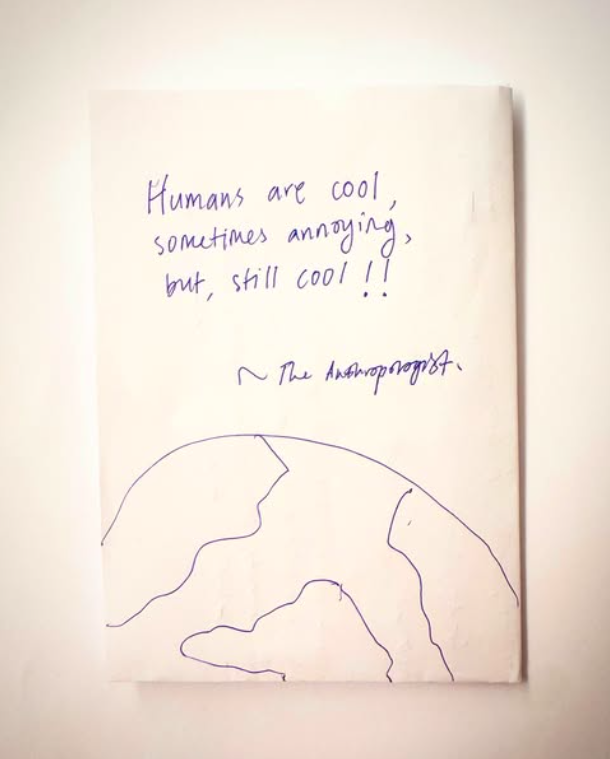 Humans are cool,
sometimes annoying,
but, still cool!!
~ The Anthropologist.